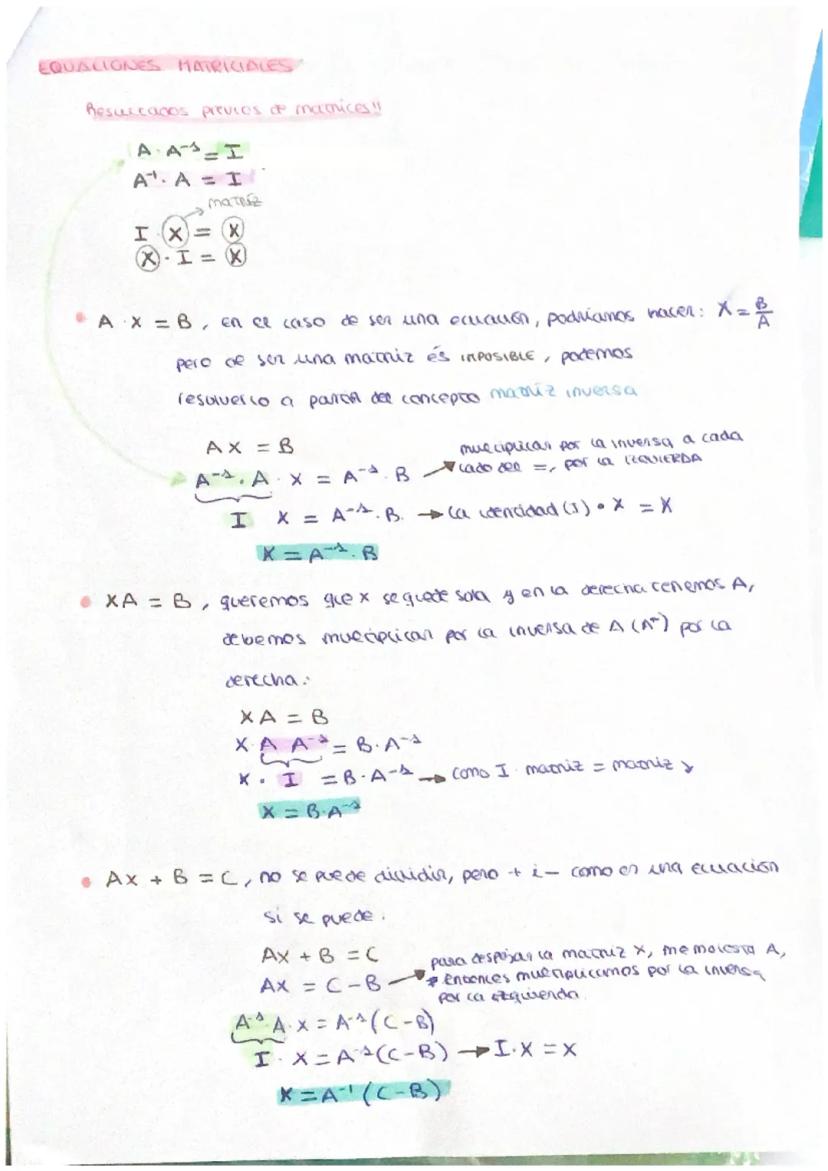 EQUACIONES MATRICIALES
Resultados previos de matrices!!
A · A⁻¹ = I
A⁻¹ · A = I
matríz
I · X = X
X · I = X
A · X = B, en el caso de ser una ecuación, podríamos hacer: X = B/A
pero de ser una matriz és IMPOSIBLE, podemos
resolverlo a partir del concepto matríz inversa
AX = B
multiplicar por la inversa a cada
lado del =, por la IZQUIERDA
A⁻¹ · A · X = A⁻¹ · B
I X = A⁻¹ · B. → La identidad (I) • X = X
X = A⁻¹ · B
XA = B, queremos que x se quede sola y en la derecha tenemos A,
debemos multiplicar por la inversa de A (A⁻¹) por la
derecha:
XA = B
X · A A⁻¹ = B · A⁻¹
X · I = B · A⁻¹ → como I · matriz = matriz
X = B · A⁻¹
AX + B = C, no se puede dividir, pero + i - como en una ecuación
si se puede.
AX + B = C
AX = C - B
para despejar la matriz X, me molesta A,
* entonces multiplicamos por la inversa
por la izquierda.
A⁻¹ A · X = A⁻¹ (C - B)
I · X = A⁻¹ (C - B) → I · X = X
X = A⁻¹ (C - B)